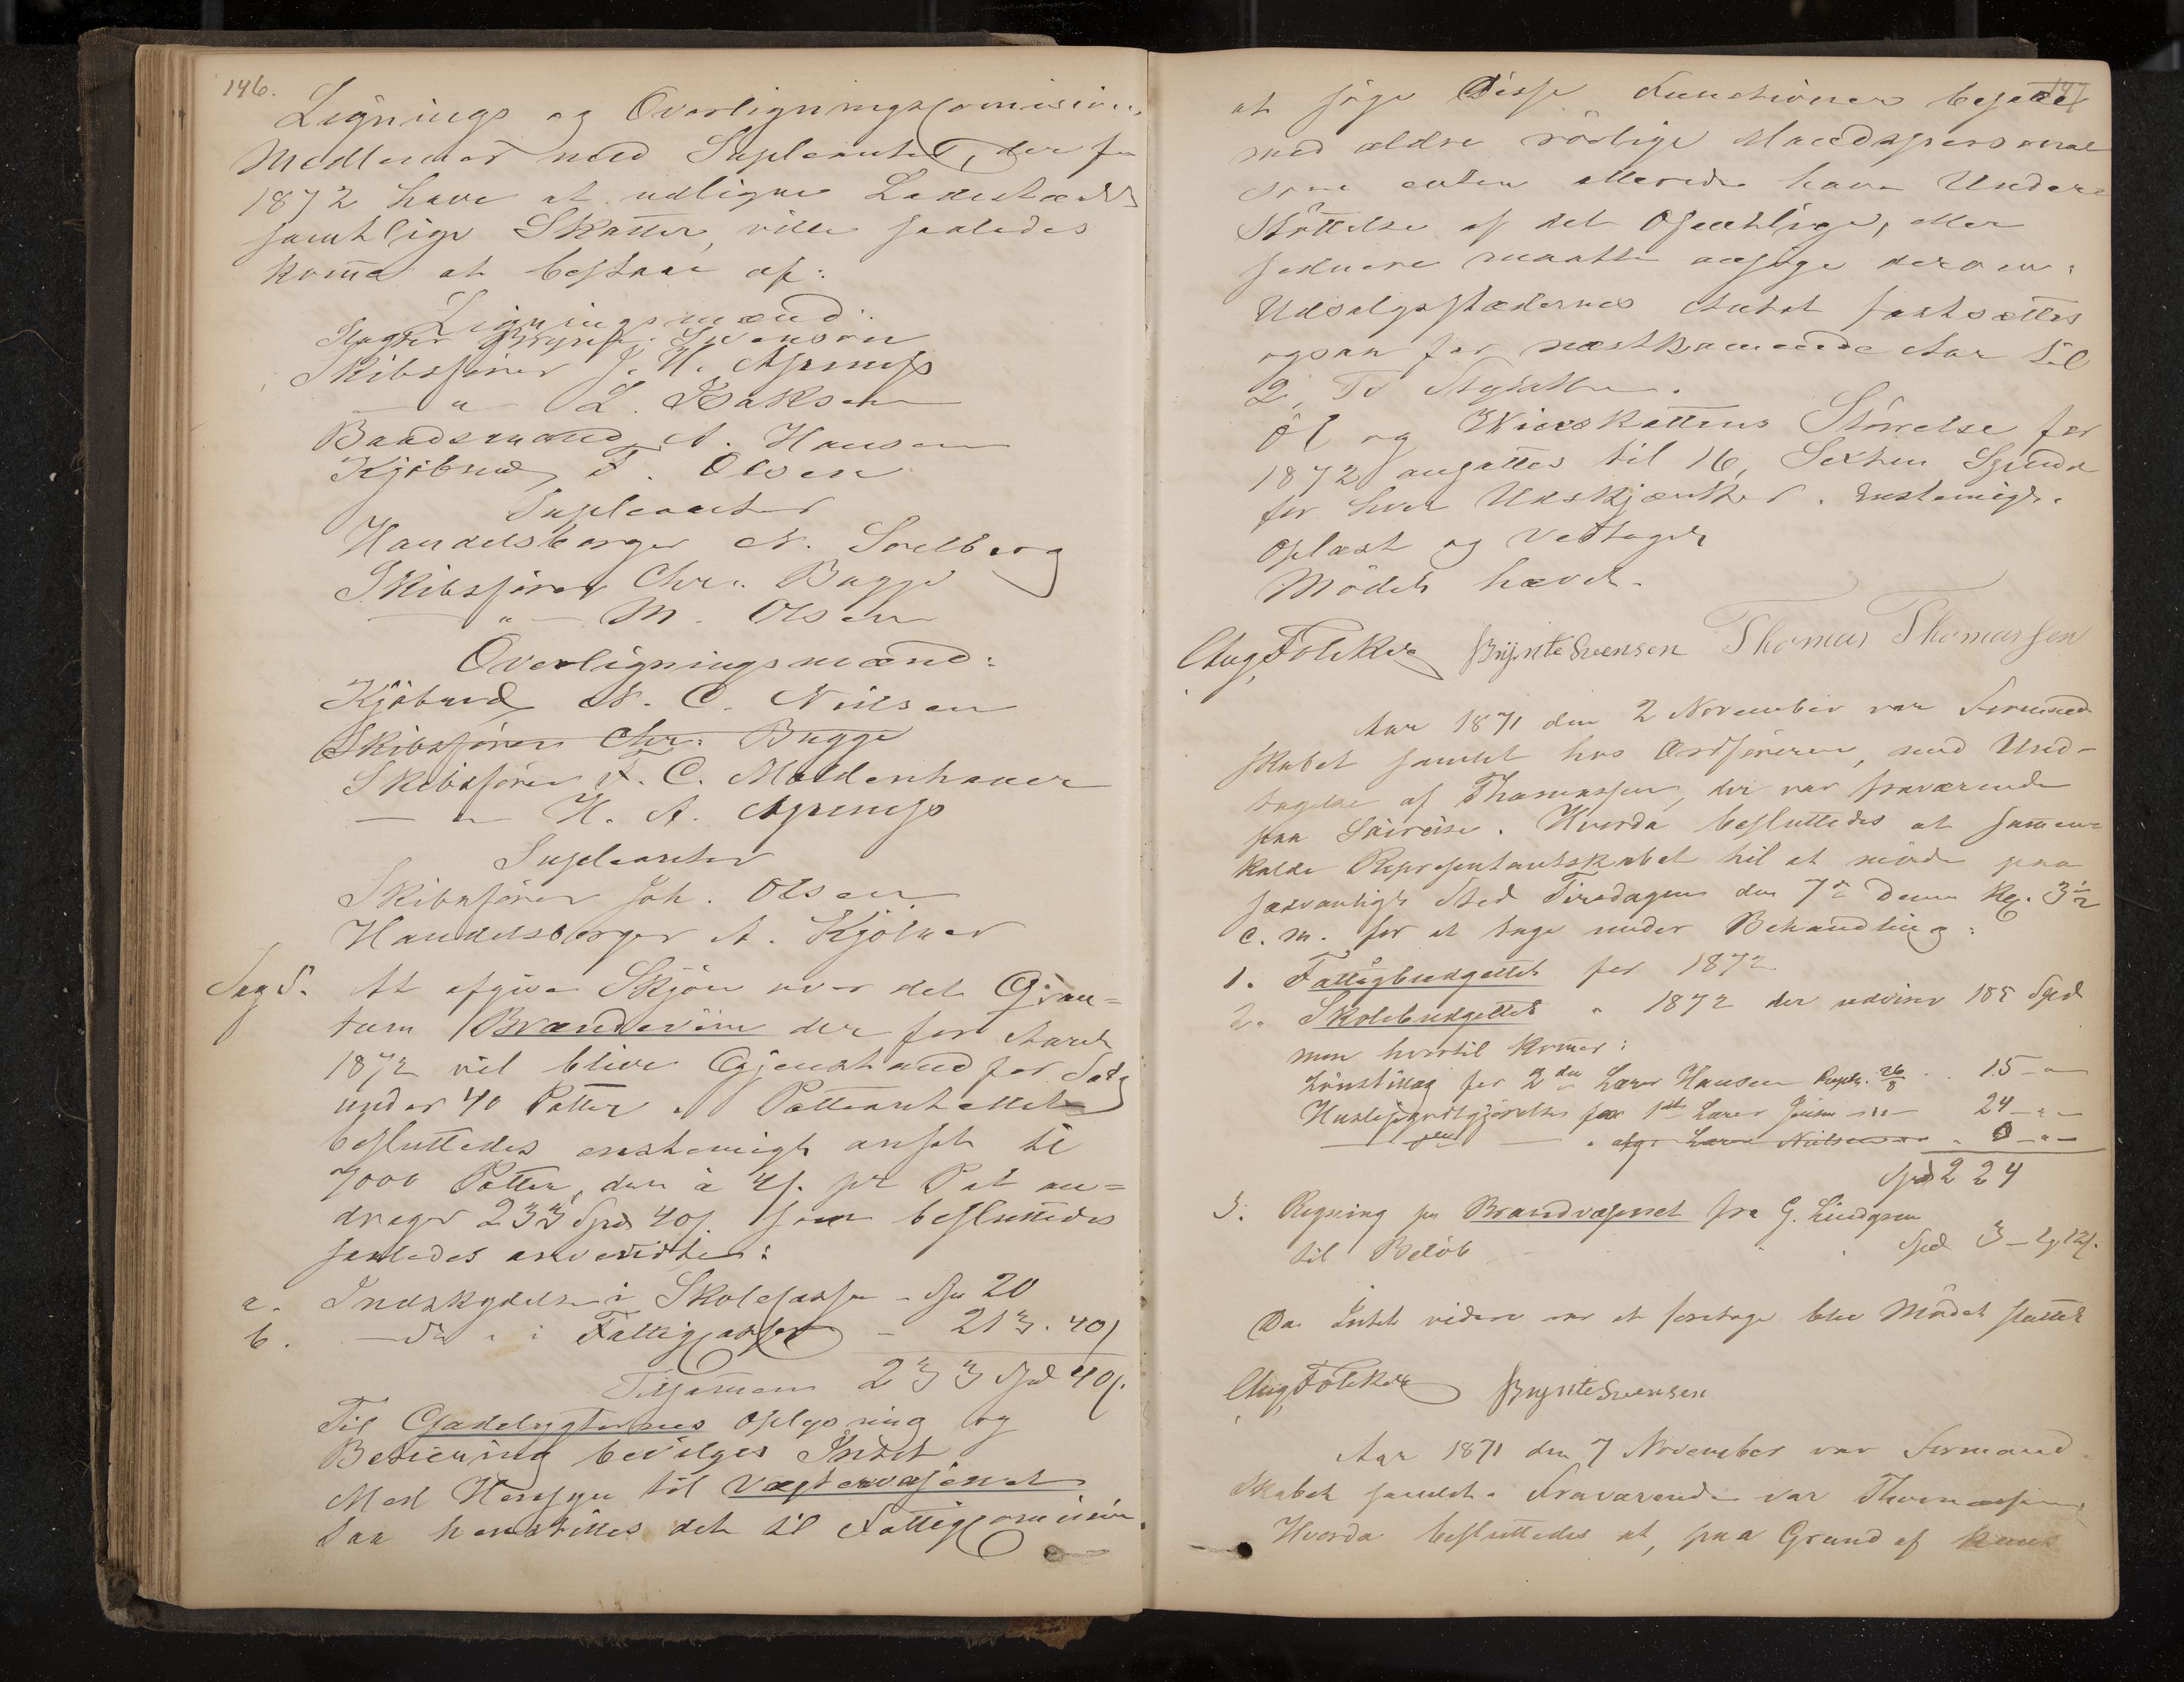 146.
Lignings og Overligningscomisions
Medlemmer med Suplianter, der for
1872 have at udligne Ladestædets
samtlige Skatter, ville saaledes
komme at bestaae af:
Ligningsmænd:
Bÿnte Svensøn
Skibsfører J. H.
— " — L. Isaksen
Baadsmand A. Hansen
Kjøbmd T. Olsen
Suplianter
Handelsborger N. Soelberg
Skibsfører Chr. Bugge
— " — M. Olsen
Overligningsmænd:
Kjøbmd N. C. Nielsen
Skibsfører Chr. Bugge
Skibsfører F. C. Moldenhauer
— " — H. A.
Suplianter
Skibsfører Joh. Olsen
Handelsborger A. Kjølner
Sag 5. At afgive Skjøn over det Qvan=
tum Brændeviin der for Aaret
1872 vil blive Gjenstand for Salg
under 40 Potter. Potteantallet
besluttedes enstemigt ansat til
7000 Potter, der à 4s. pr Pot an=
drager 233 Spd 40s. som besluttedes
saaledes anvendte:
a. Indskydelse i Skolecassen - Sp 20
b. — do " i Fattigcassen — 213. 40s
Tilsammen 233 Spd 40s.
Til Gadelygternes Oplysning og
Betiening bevilges Intet
Med Hensyn til Vægtervæsenet
saa henstilles det til Fattigcomisionen
147
at søge disse Functioner besatte
med ældre rørlige Mandspersoner
som enten allerede have Under=
støttelse af det Ofentlige, eller
sednere maatte ansøge derom.
Udsalgsstædernes Antal fastsættes
ogsaa for næstkommende Aar til
2, To Stykker.
Øl og Viinskattens Størrelse for
1872 ansattes til 16, Sexten Spmdr
for hver Udskjænker. Enstemigt.
Oplæst og Vedtaget
Mødet hævet.
Aug. Følcker Bÿnte Svensen Thomas Thomassen
Aar 1871 den 2 November var Formand
skabet samlet hos Ordføreren, med Und-
tagelse af Thomassen, der var fraværende
paa Søireise. Hvorda besluttedes at samen=
kalde Representantskabet til at møde paa
sædvanligt Sted Tirsdagen den 7de Denne Kl. 3½
e. m. for at tage under Behandling:
1. Fattigbudgettet for 1872
2. Skolebudgettet " 1872 der udviser 185 Spd
men hvortil kommer:
Lønstillæg for 2den Lærer Hansen 26/8 . . 15 — " —
Huusleiegodtgjørelse for 1ste Lærer Jensen — " — 24 — " —
— do — " afg. Lærer Nielsen — " 0 — " —
Spd 224
3. Regning pr Brandvæsenet fra G. Lindgren
til Beløb Spd 3 — 2 12s.
Da Intet videre var at foretage blev Mødet sluttet
Aug. Følcker Bÿnte Svensen
Aar 1871 den 7 November var Formand
skabet samlet. Fraværende var Thomassen
Hvorda besluttedes at, paa Grund af